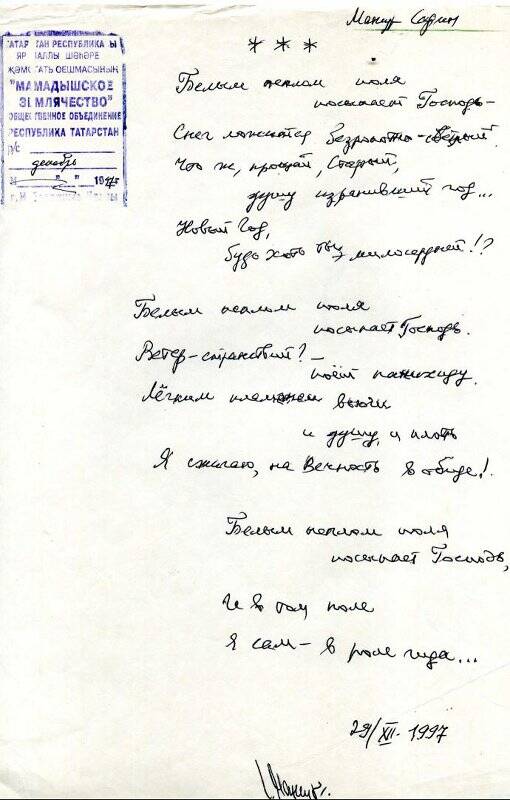 Мансур Сафин
* * *
ТАТАРСТАН РЕСПУБЛИКАСЫ
ЯР ЧАЛЛЫ ШӘҺӘРЕ
ҖӘМӘГАТЬ ОЕШМАСЫНЫҢ
"МАМАДЫШСКОЕ
ЗЕМЛЯЧЕСТВО"
ОБЩЕСТВЕННОЕ ОБЪЕДИНЕНИЕ
РЕСПУБЛИКА ТАТАРСТАН
р/с
декабрь
" " 1997г
Белым пеплом поля
посыпает Господь –
Снег ложится безропотно-
Что ж, прощай, Старый,
душу изранивший год...
Новый Год,
будь хоть ты милосердней!?
Белым пеплом поля
посыпает Господь.
Ветер-странствий? –
поёт панихиду.
Лёгким пламенем вьюги
и душу, и плоть
Я сжигаю, на Вечность в обиде!
Белым пеплом поля
посыпает Господь,
И в том поле
Я сам – в роле гида...
29/XII-1997